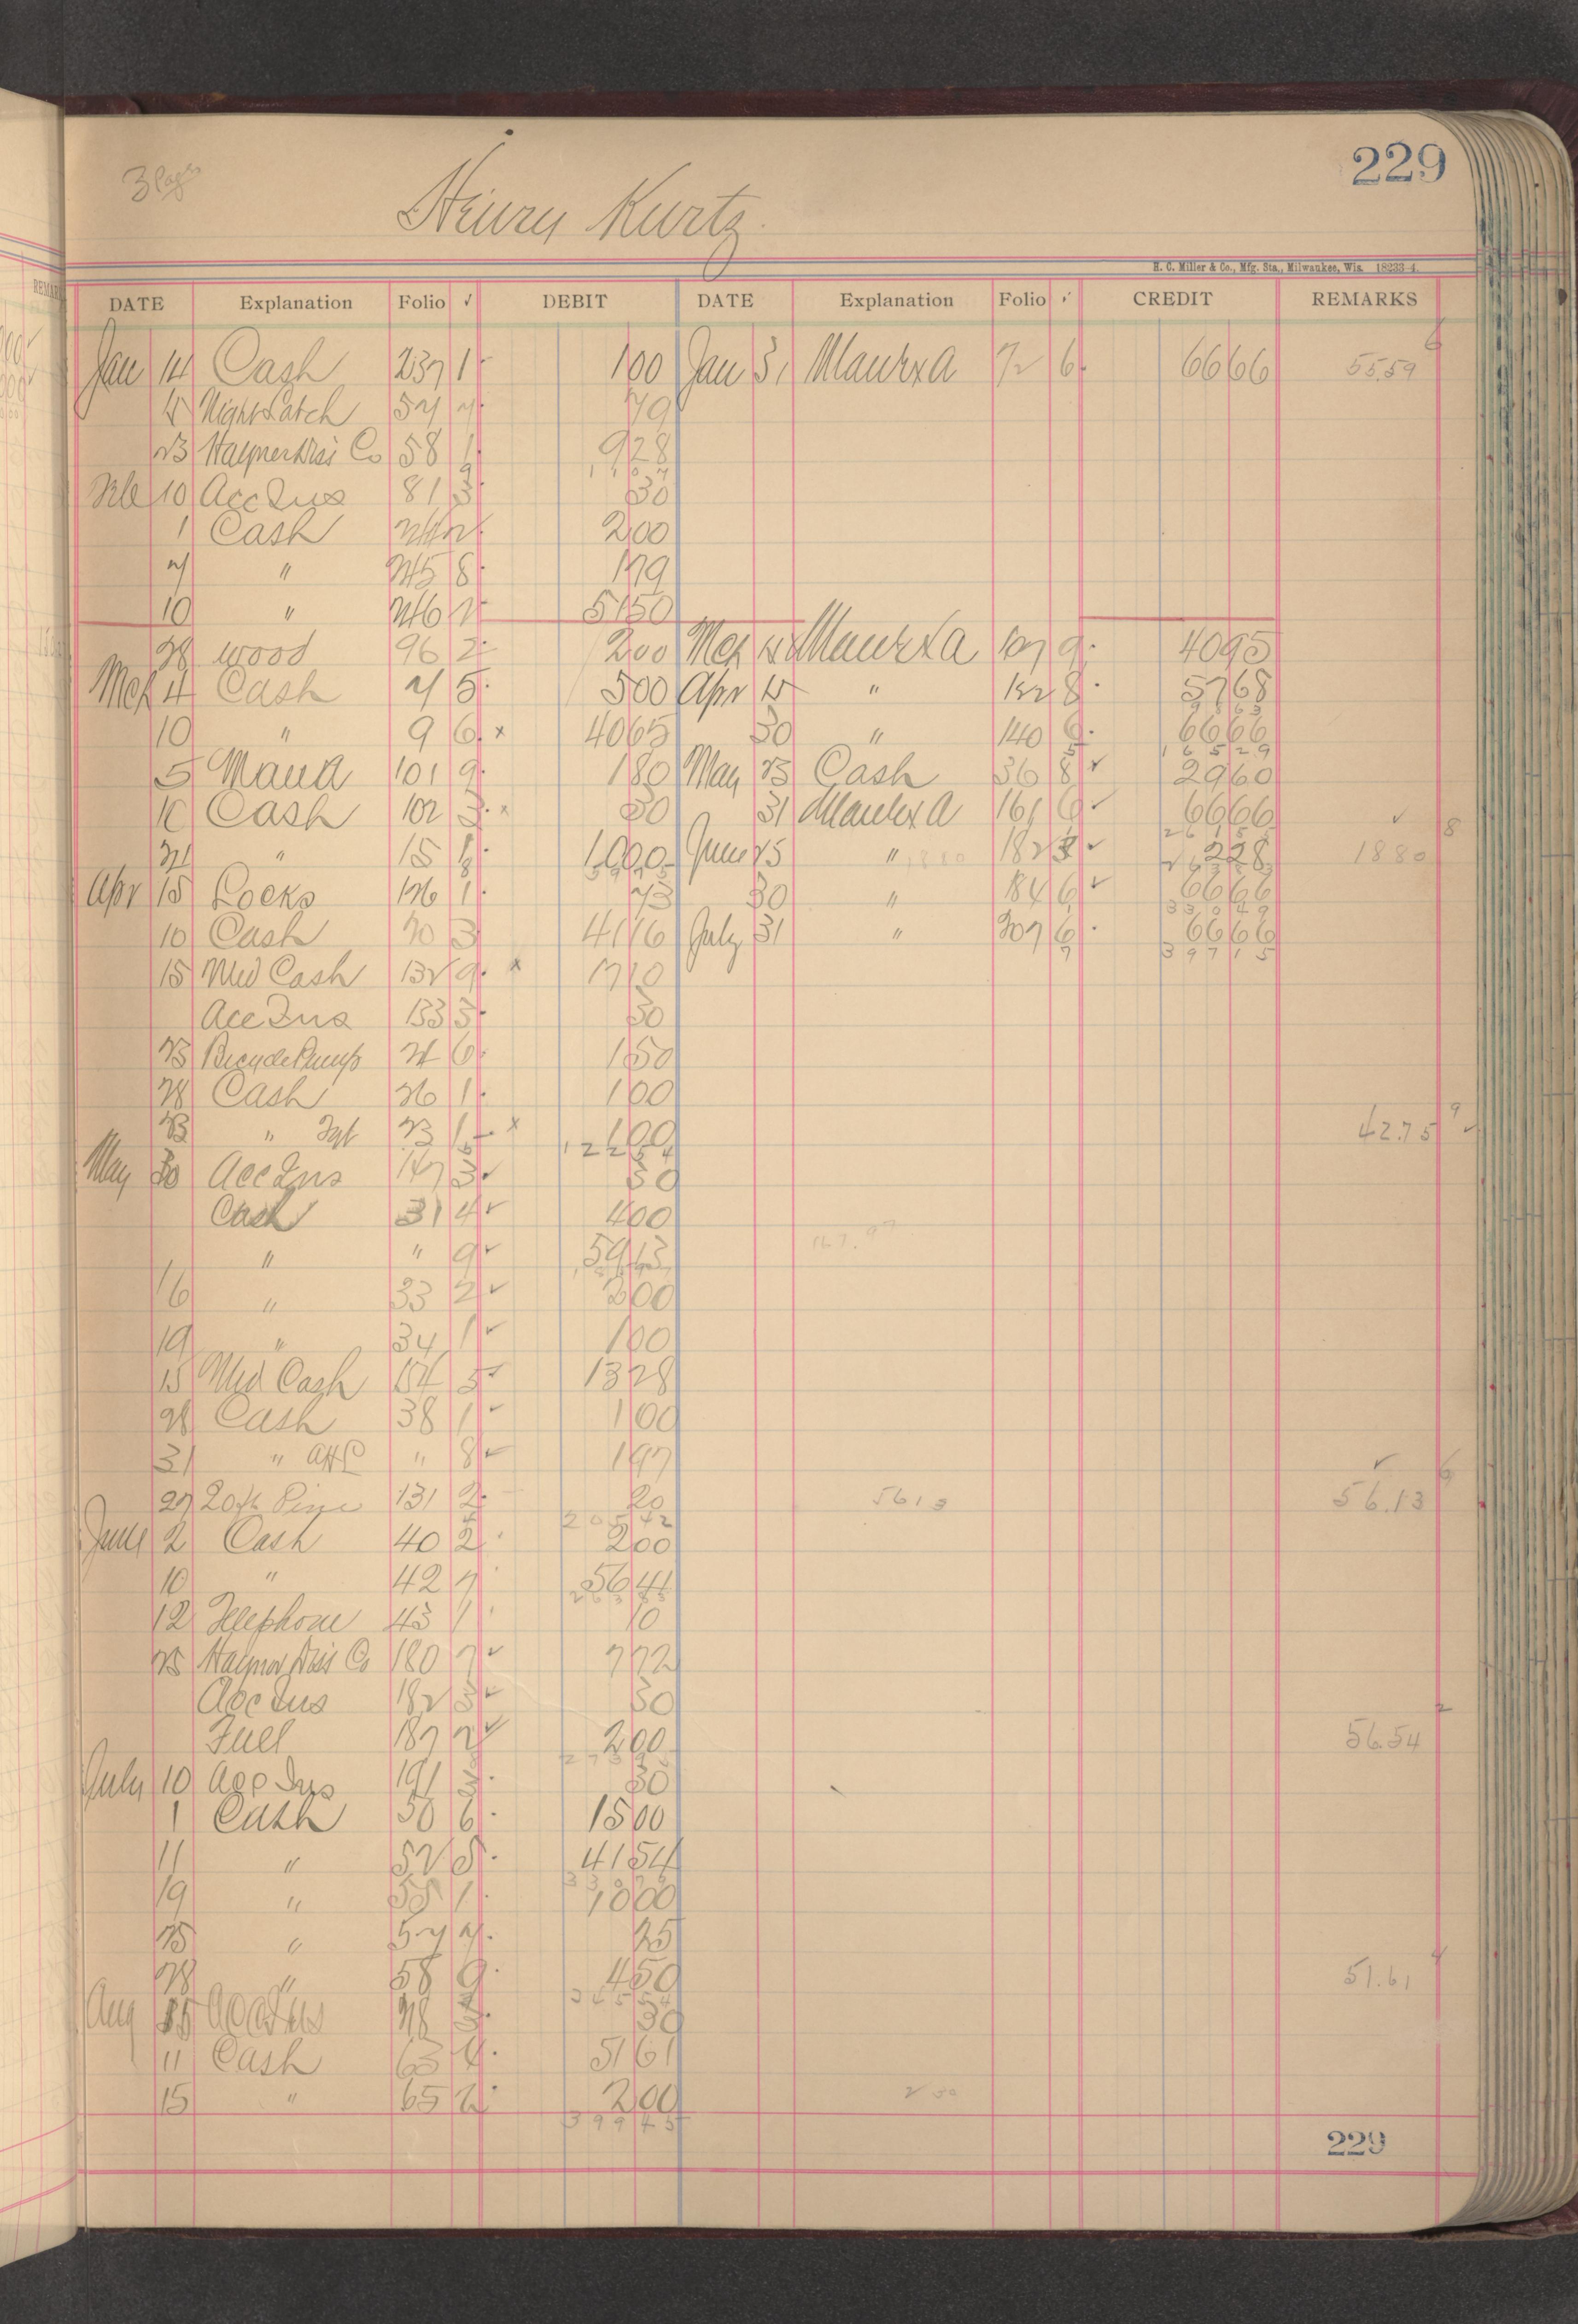 3 Pages
Henry Kurtz.
229
H. C. Miller & Co., Mfg. Sta., Milwaukee, Wis. 18233-4.
DATE Explanation Folio ✓ DEBIT DATE Explanation Folio ✓ CREDIT REMARKS
Jan 14 Cash 237 1 100 Jan 31 72 6 6666 55.59
Night Latch 57 7 79
23 Co 58 1 928
10 Acc Ins 81 3 30
1 Cash 200
7 " 245 8 179
10 " 246 5150
28 wood 96 2 200 Mch 107 9 4095
Mch 4 Cash 7 5 500 Apr 15 " 132 8 5768
10 " 9 6 x 4065 30 " 140 6 6666
16529
5 101 9 180 May 23 Cash 36 8 ✓ 2960
10 Cash 102 3 x 30 31 161 6 ✓ 6666 ✓ 8
26155
21 " 15 1 1000 June 25 " 1880 182 ✓ 228 1880
Apr 15 Locks 126 1 73 30 " 184 6 ✓ 6666
33049
10 Cash 20 3 4116 July 31 " 207 6 6666
39715
15 Cash 132 9 x 1710
Acc Ins 133 3 30
23 Bicycle Pump 24 6 150
28 Cash 26 1 100
23 " 23 1 x 100 42.75 9
12254
May 30 Acc Ins 147 3 ✓ 30
Cash 31 4 ✓ 400
" " 9 ✓ 5913 167.97
16 " 33 2 ✓ 200
19 " 34 1 ✓ 100
15 Cash 154 5 ✓ 1328
28 Cash 38 1 ✓ 100
31 " " 8 ✓ 197 ✓ 6
27 131 2 20 5613 56.13
20542
June 2 Cash 40 2 200
10 " 42 7 5641
12 Telephone 43 1 10
25 Co 180 7 ✓ 772
Acc Ins 182 3 ✓ 30 2
Fuel 187 2 ✓ 200 56.54
July 10 Acc Ins 191 3 30
1 Cash 50 6 1500
11 " 52 5 4154
19 " 55 1 1000
25 " 57 7 25
28 " 58 9 450 51.61 4
36554
Aug 15 Acc Ins 218 3 30
11 Cash 63 4 5161
15 " 65 2 200
39945
229